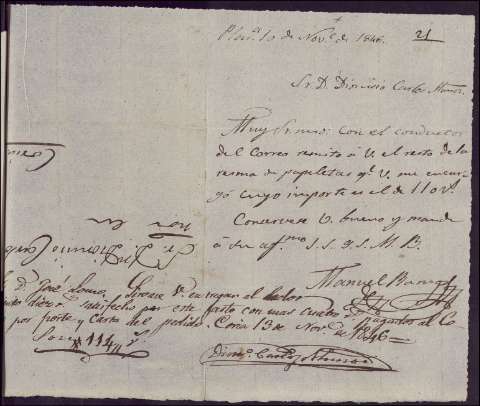 21
Plas.ª 10 de Nov.e de 1846.
Sr. D. Dionisio Carlos Muñoz.
Muy Sr. mio: Con el conductor
del Correo remito à V. el resto de la
resma de papeletas q.e V. me encar-
gó cuyo importe es el de 110 r.s
Conservese V. bueno y mande
à su af.mo S. S. q. S. M. B.
Manuel
Sr. D. Dionisio
Coria
D. José Sirvase V. entregar el dador
satisfecho por este gasto con mas cuatro r.s pagados al C.
por porte y carta del pedido. Coria 13 de Nov.e de 1846
Son 114 r.s